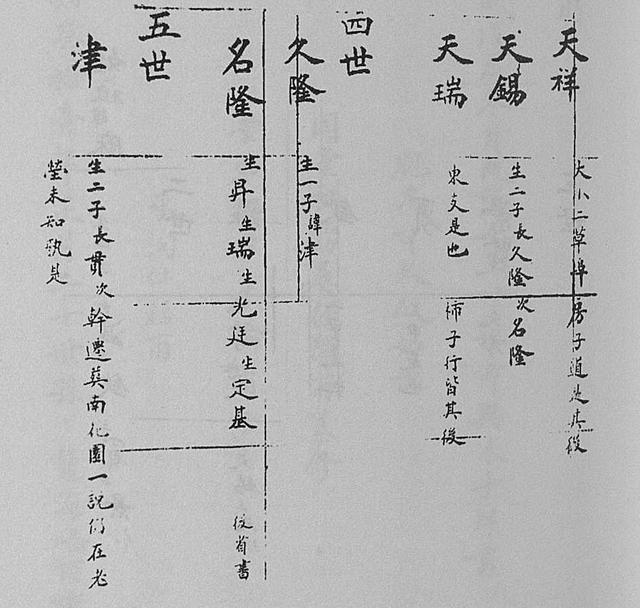 天祥
大小二草埠房子道是其後
天錫
生二子長久隆次名隆
天瑞
東支是也
柿子行皆其後
四世
久隆
生一子諱津
名隆
生昇生瑞生光廷生定基
後省書
五世
津
生二子長貫次幹遷葬南花園一說仍在老
塋未知孰是